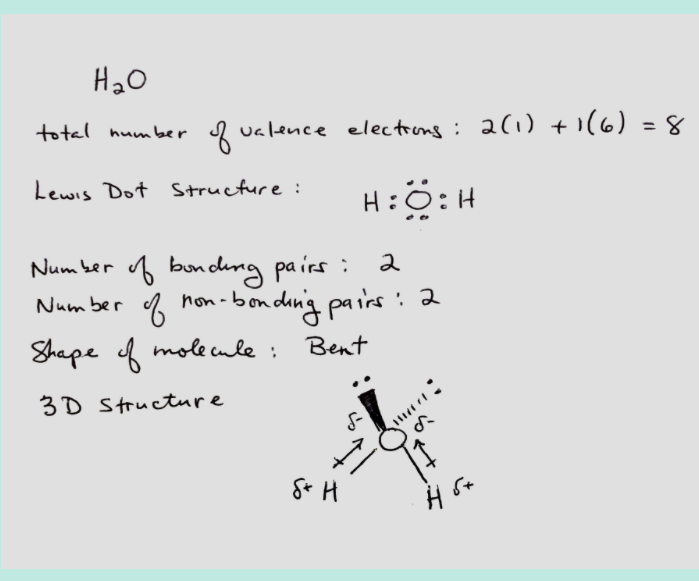 H₂O
total number of valence electrons : 2(1) + 1(6) = 8
Lewis Dot Structure : H : Ö : H
Number of bonding pairs : 2
Number of non-bonding pairs : 2
Shape of molecule : Bent
3D Structure
δ- δ-
δ+ H H δ+